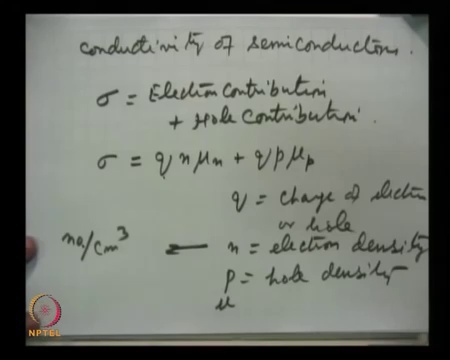 conductivity of semiconductors.
σ = Electron contribution
+ Hole contribution.
σ = q n μn + q p μp
q = charge of electron
or hole
no/cm³ ← n = electron density
p = hole density
μ
NPTEL